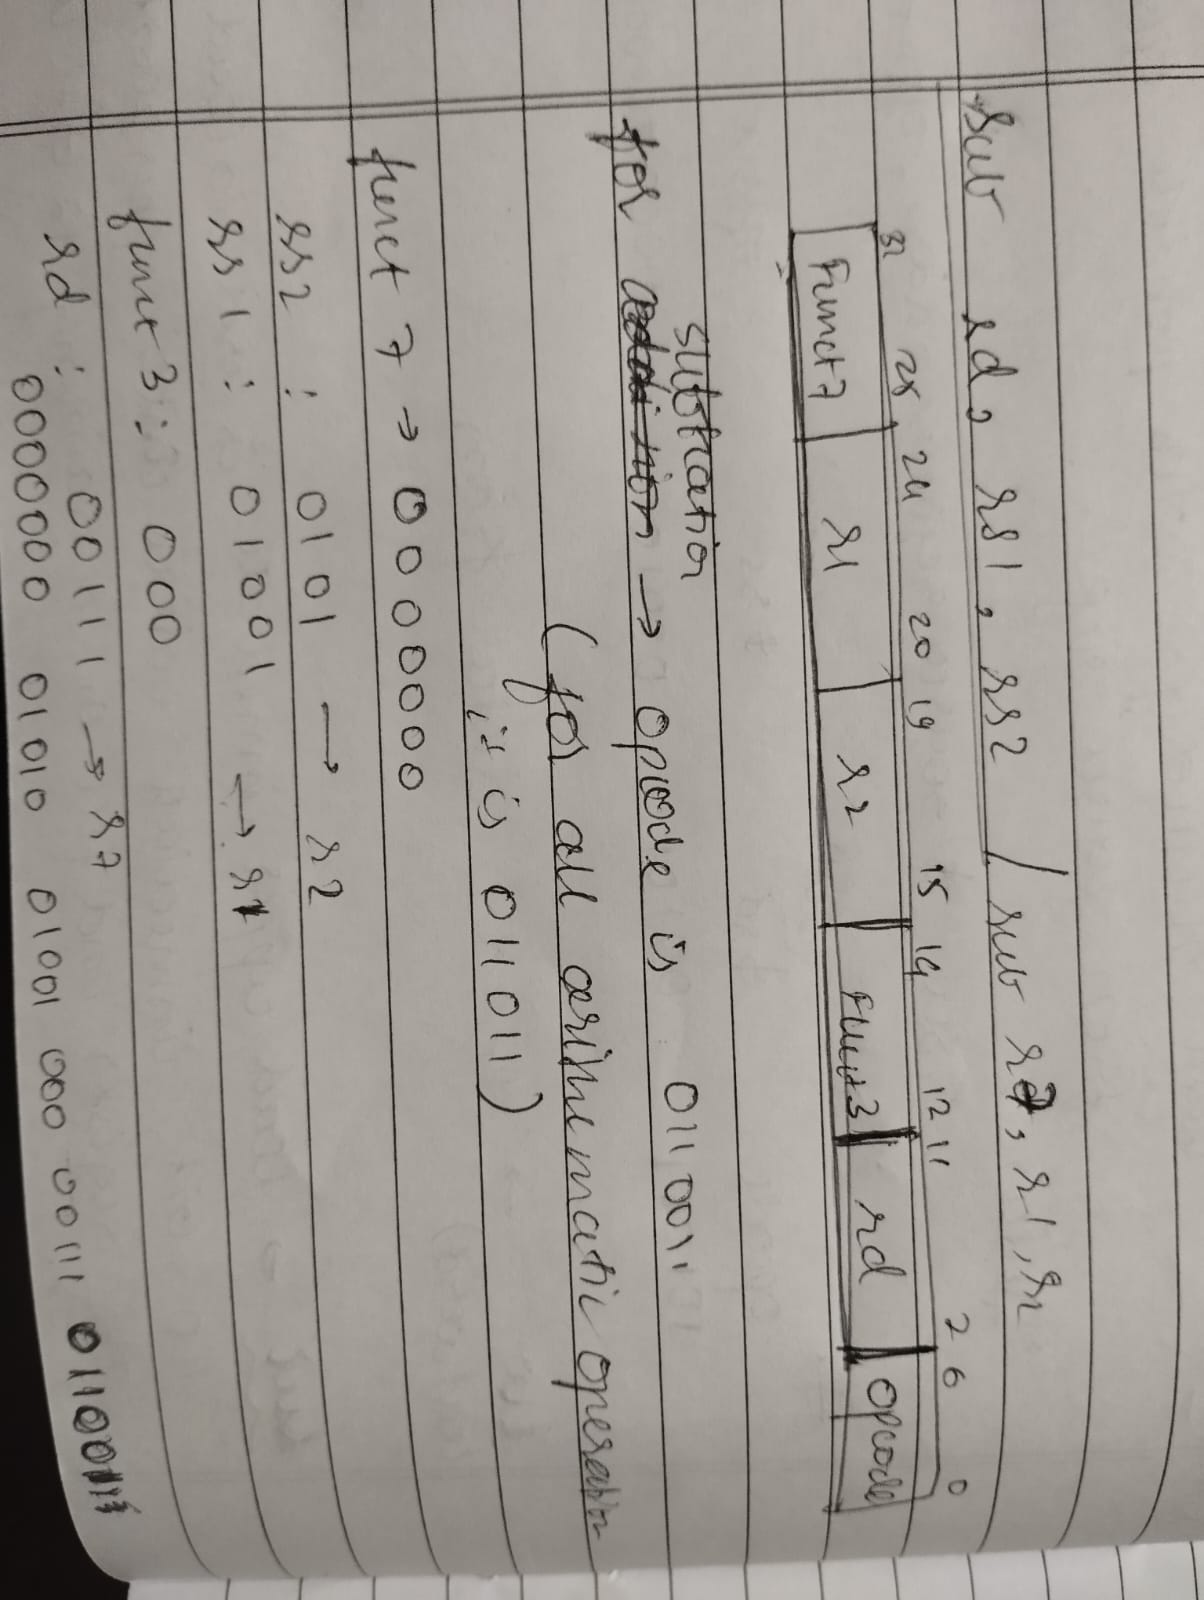 sub rd, rs1, rs2 / sub r7, r1, r2
32 25 24 20 19 15 14 12 11 7 6 0
Funct7 r1 r2 Funct3 rd opcode
subtration
for addition → opcode is 0110011
(for all arithematic operation
it is 011011)
funct 7 → 0000000
rs2 : 0101 → r2
rs1 : 01001 → r1
funct 3 : 000
rd : 00111 → r7
0000000 01010 01001 000 00111